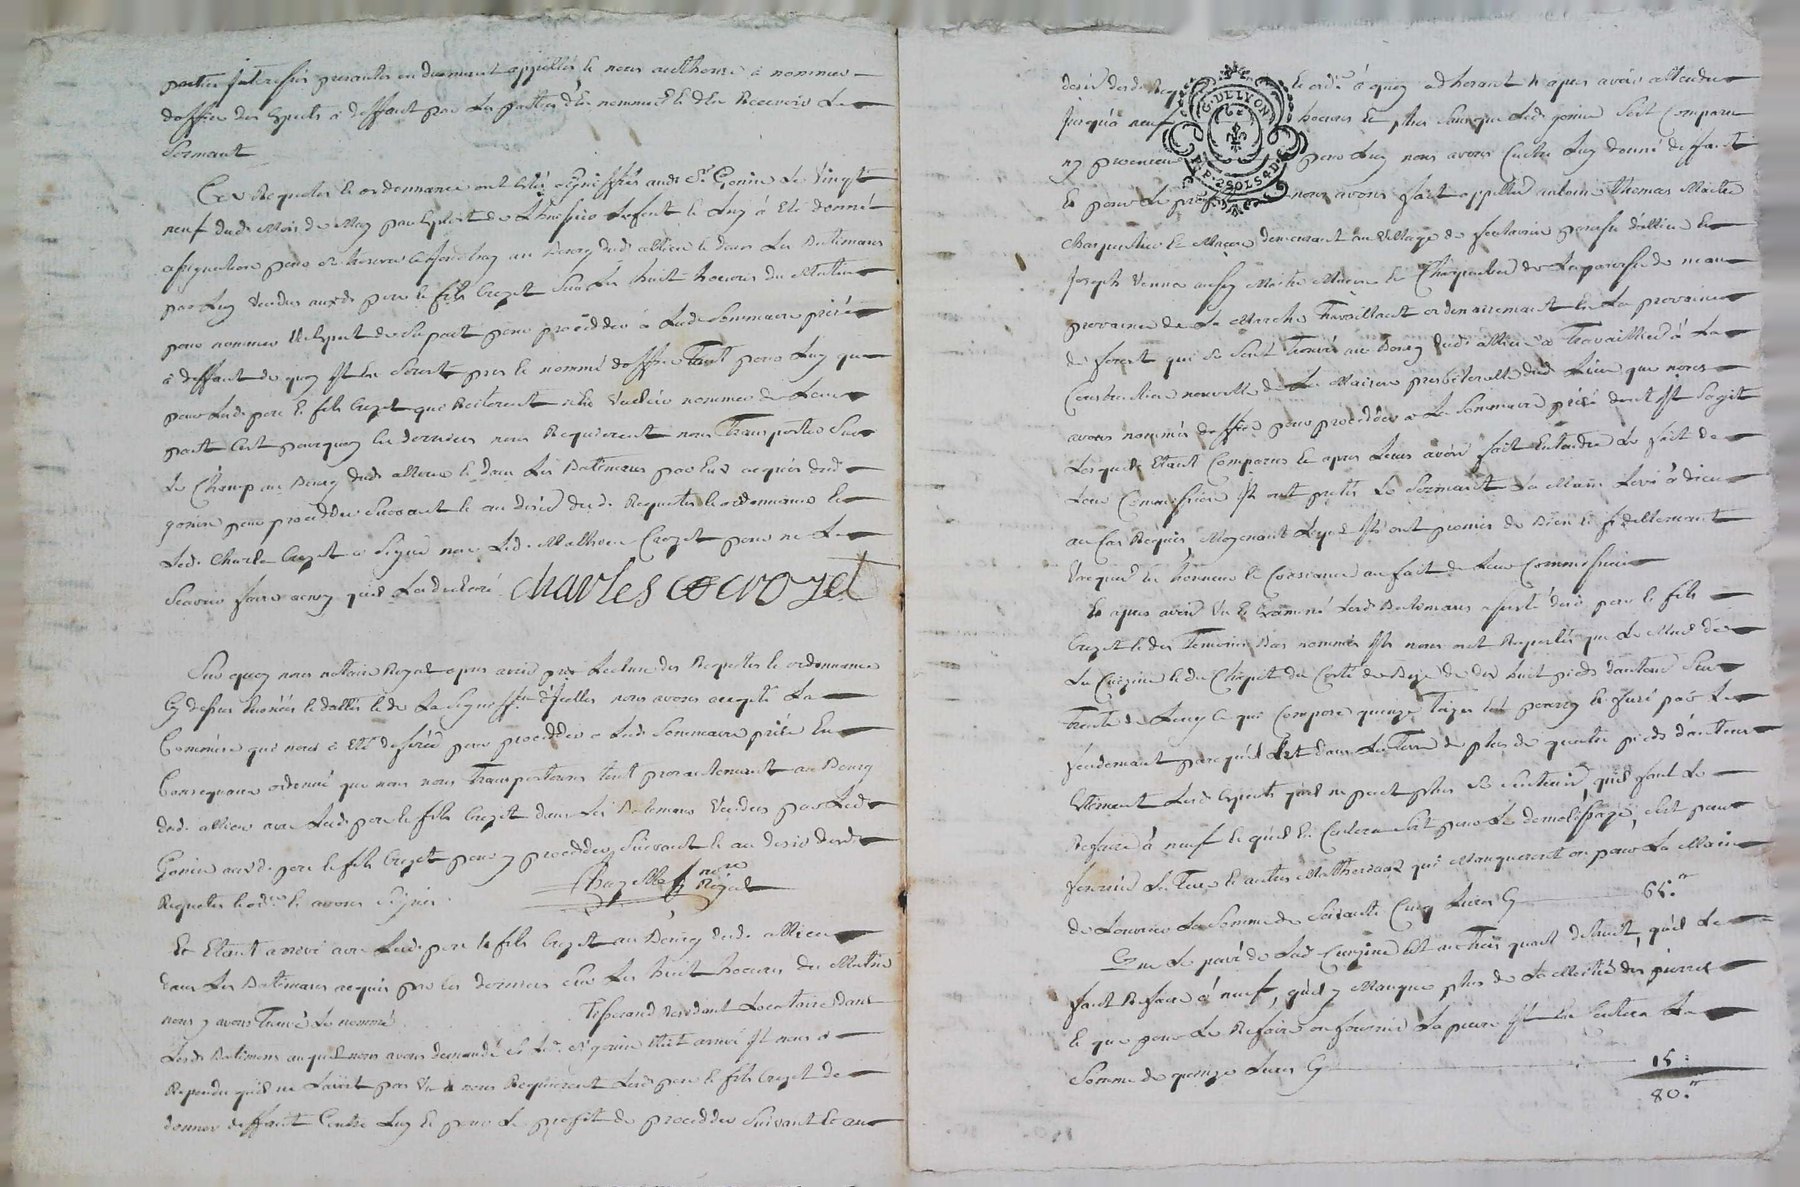 parties interessées presantes ou duemant appellés et nous authorise à nommer
doffice des Experts à deffaut par les parties d'en nommer et d'en Recevoir le
sermant
Ces Requetes et ordonnance ont étés signiffiés audt Sr Gonin le vingt
neuf dudt Mois de May par Exploit de et luy à été donné
assignation pour ce au Bourg dudt allieu et dans les Batimans
par luy vendus auxdt pere et fils Crozet sur les huit heures du Matin
pour nommer Expert de sa part pour procedder à ladt Sommaire prisée
à deffaut de quoy Il en seroit pris et nommé doffice tant pour luy que
pour lesdt pere et fils Crozet qui nommer de leur
part cest pourquoy les derniers nous Requierent nous Transporter sur
le Champ au Bourg dudt allieu et dans les Batimans par eux acquis dudt
gonin pour procedder suivant et au desir desdt Requetes et ordonnance et
ledt Charles Crozet a signé non ledt Mathieu Crozet pour ne le
scavoir faire
charles crozet
Sur quoy nous notaire Royal apres avoir pris lecture des Requetes et ordonnance
Cy dessus et dattés et de la Signiffication d'jcelles nous avons accepté la
Commission qui nous a été deferée pour procedder a ladt Sommaire prisée En
Consequance ordonné que nous nous Transporterons tout presantemant au Bourg
dudt allieu avec lesdt pere et fils Crozet dans les Batimans vendus par ledt
Gonin auxdt pere et fils Crozet pour y procedder suivant et au desir desdt
Requetes et ordce et avons signés.
Chazelles nore Royal
Et Etant arrivé avec lesdt pere et fils Crozet au Bourg dudt allieu
dans les Batimans acquis par les derniers sur les huit heures du Matin
nous y avons Trouvé le nommé Tesserand Residant Locataire dans
lesdt Batimans auquel nous avons demandé si Sr gonin étoit arrivé Il nous a
Repondu quil ne lavoit pas vu et nous Requierent lesdt pere et fils Crozet de
donner deffaut Contre luy et pour le profit de procedder suivant et au
desir desdt Req et ordce à quoy adherant et apres avoir attendu
jusqu'à neuf heures et plus sans que ledt gonin soit comparu
ny personne pour luy nous avons Contre luy donné deffaut
Et pour le profit nous avons fait appeller antoine Thomas Maitre
Charpentier et Maçon demeurant au village de parroisse d'allieu et
Joseph Venne aussy Maitre Maçon et Charpentier de la parroisse de
province de la Marche Travaillant ordinairemant en la province
de forest qui se sont Trouvé au Bourg dudt allieu à Travailler à la
Construction nouvelle de la Maison presbiteralle dudt Lieu que nous
avons nommés doffice pour procedder a la Sommaire prisée dont Il s'agit
lesquels Etant Comparus et apres leur avoir fait Entandre le fait de
leur Commission Ils ont prétés le Sermant la Main levé à dieu
au Cas Requis, Moyenant lequel Ils ont promis de bien et fidellemant
vacquer en honneur et Consiance au fait de leur Commission
Et apres avoir vu et Examiné lesdt Batimans assisté desdt pere et fils
Crozet et des Temoins Bas nommés Ils nous ont Raportés que le Mur de
la Cuizine et du du Cotté de Bize de dix huit pieds dauteur sur
trente de long ce qui compose quinze toizes est pourry et usé par le
fondemant parcequ'il est dans la terre de plus de quatre pieds d'auteur
Estimant lesdt Experts qu'il ne peut plus se soutenir, quil faut le
Refaire à neuf et qu'il En Coutera soit pour le demolissage, soit pour
fournir la Terre et autres Matheriaux qui Manqueront ou pour la Main
de L'ouvrier la Somme de Soixante Cinq livres Cy 65.tt
Que le pavé de ladt Cuizine est au Trois quart detruit, qu'il le
faut Refaire à neuf, quil y Manque plus de la Moitié des pierres
et que pour le Refaire ou fournir la pierre Il En Coutera la
Somme de quinze livres Cy 15:
80.tt
G. DE LYON
P.P. 2 SOLS 4 D.